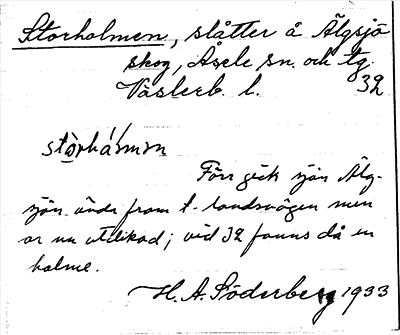 Storholmen, slåtter å Älgsjö
skog, Åsele sn. och tg.
Västerb. l. 32
stòrhά̀rmɷn
Förr gick sjön Älg-
sjön ända fram t. landsvägen men
är nu utdikad; vid 32 fanns då en
holme.
H. A. Söderberg 1933